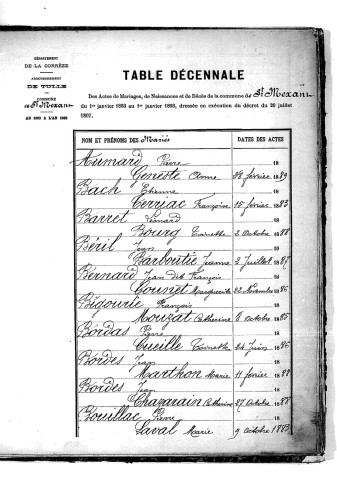 DÉPARTEMENT
DE LA CORRÈZE
ARRONDISSEMENT
DE TULLE
COMMUNE
de St Mexant
AN 1883 A L'AN 1893
TABLE DÉCENNALE
Des Actes de Mariages, de Naissances et de Décès de la commune de St Mexant
du 1er janvier 1883 au 1er janvier 1893, dressée en exécution du décret du 20 juillet
1807.
NOM ET PRÉNOMS DES Mariés DATES DES ACTES
Aumard Pierre 18
Geneste Anne 28 février 1889
Bach Etienne 18
Terriac Françoise 15 février 1883
Barret Léonard 18
Bourg Toinette 2 Octobre 1888
Béril Jean 18
Barboutie Jeanne 2 Juillet 1887
Bernard Jean dit François 18
Counet Marguerite 22 Novembre 1886
Bigourie François 18
Mouzat Catherine 8 octobre 1885
Bordas Pierre 18
Cueille Toinette 24 Juin 1886
Bordes Jean 18
Marthon Marie 11 février 1888
Bordes Jean 18
Chazarain Catherine 27 Octobre 1888
Bouillac Pierre 18
Laval Marie 9 octobre 1883